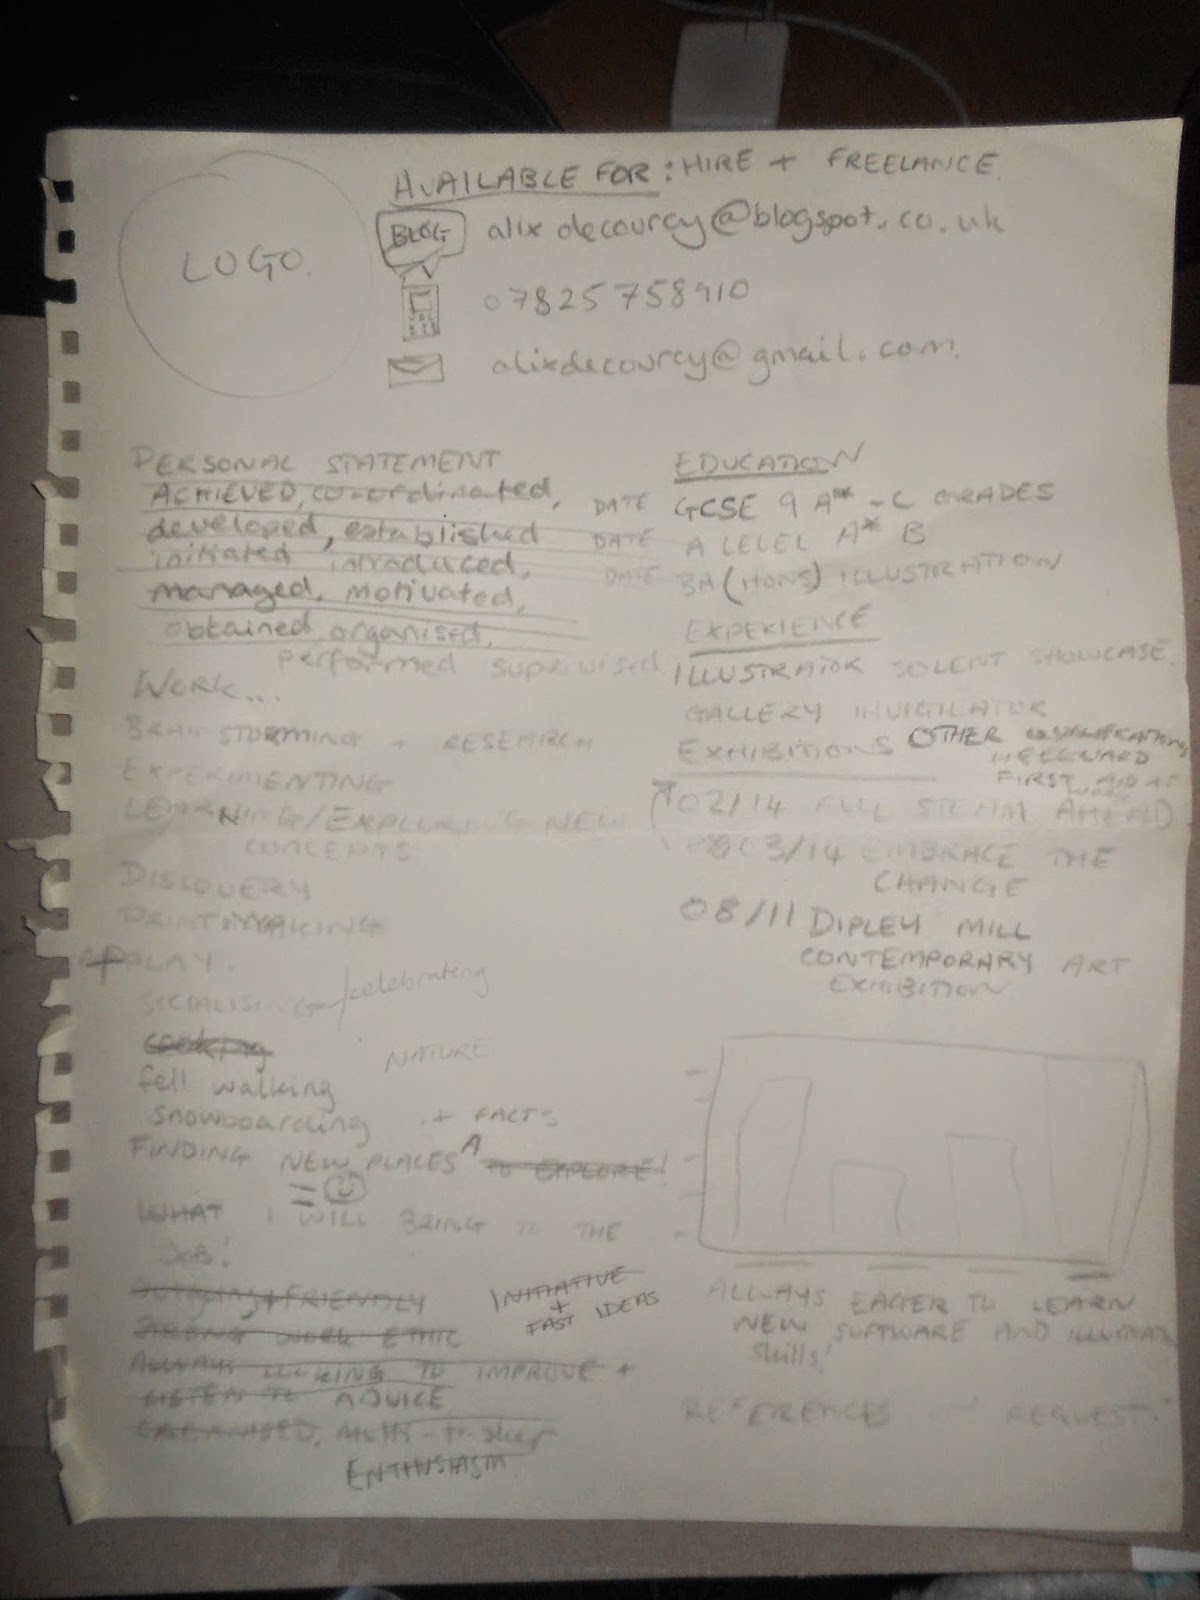 LOGO.
AVAILABLE FOR: HIRE + FREELANCE.
BLOG alixdecourcy@blogspot.co.uk
07825758910
alixdecourcy@gmail.com.
PERSONAL STATEMENT
ACHIEVED, co-ordinated,
developed, established
initiated introduced,
managed, motivated,
obtained organised,
performed supervised
WORK...
BRAINSTORMING + RESEARCH
EXPERIMENTING
LEARNING/EXPLORING NEW
CONCEPTS
DISCOVERY
PRINTMAKING
+ PLAY.
SOCIALISING /celebrating
cooking
NATURE
fell walking
snowboarding + FACTS
FINDING NEW PLACES TO EXPLORE!
WHAT I WILL BRING TO THE
JOB!
OUTGOING + FRIENDLY
STRONG WORK ETHIC
INITIATIVE
+
FAST IDEAS
ALWAYS LOOKING TO IMPROVE +
LISTEN TO ADVICE
ORGANISED, multi-tasker
ENTHUSIASM
EDUCATION
DATE GCSE 9 A* - C GRADES
DATE A LEVEL A* B
DATE BA (HONS) ILLUSTRATION
EXPERIENCE
ILLUSTRATOR SOLENT SHOWCASE
GALLERY INVIGILATOR
EXHIBITIONS
OTHER
FIRST AID AT
WORK
02/14 FULL STEAM AHEAD
03/14 EMBRACE THE
CHANGE
08/11 DIPLEY MILL
CONTEMPORARY ART
EXHIBITION
ALLWAYS EAGER TO LEARN
NEW SOFTWARE AND
skills!
REFERENCES ON REQUEST.